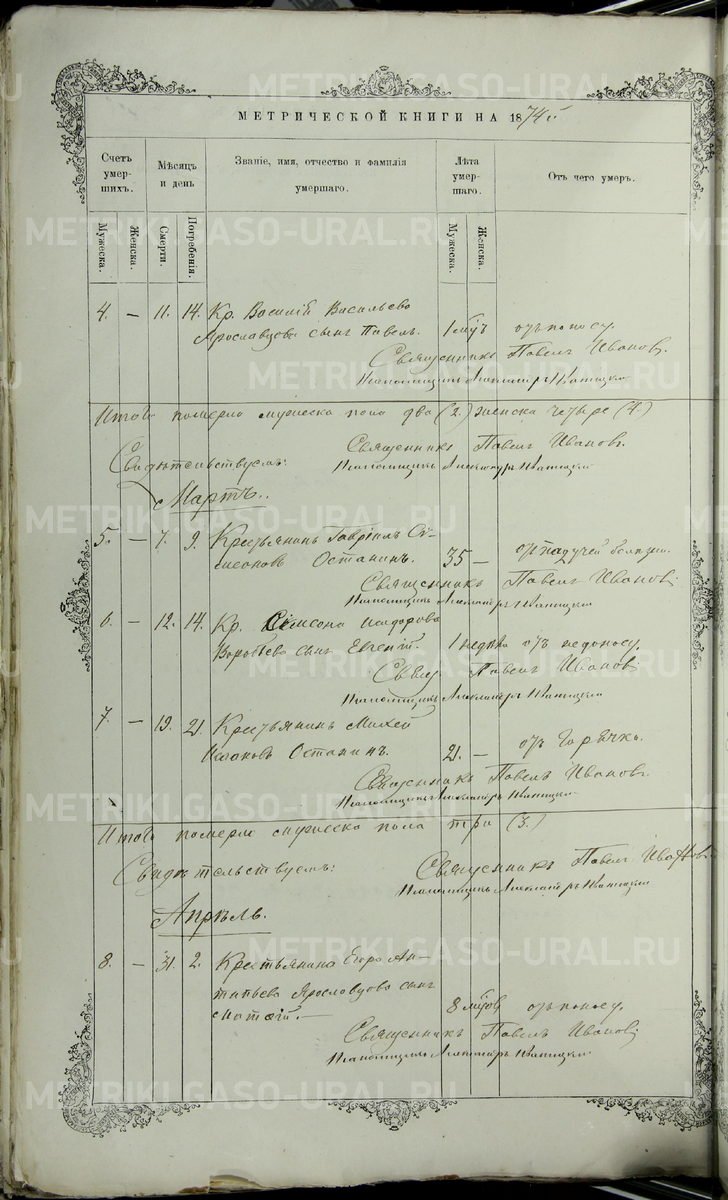 МЕТРИЧЕСКОЙ КНИГИ НА 1874й
Счетъ умер-шихъ.
Мѣсяцъ и день
Званіе, имя, отчество и фамилія умершаго.
Лѣта умер-шаго.
Отъ чего умеръ.
Мужеска.
Женска.
Смерти.
Погребенія.
Мужеска.
Женска.
4. — 11. 14. Кр. Василій Васильева
Ярославцова сынъ Павелъ. 1 отъ поносу.
Священникъ Павелъ Ивановъ.
Псаломщикъ
Итого померло мужеска пола два (2.) женска четыре (4.)
Священникъ Павелъ Ивановъ.
Свидѣтельствуемъ:
Псаломщикъ
Мартъ.
5. — 7. 9. Крестьянинъ Гавріилъ Си-
меоновъ Останинъ. 35 — отъ падучей болезни.
Священникъ Павелъ Ивановъ
Псаломщикъ
6. — 12. 14. Кр. Симеона Исидорова
Воробьева сынъ Евгеній. 1 недѣля отъ недоносу.
Свящ Павелъ Ивановъ
Псаломщикъ
7. — 19. 21. Крестьянинъ Михей
Останинъ. 21. — отъ Горячки.
Священникъ Павелъ Ивановъ.
Псаломщикъ
Итого померло мужеска пола три (3.)
Свидѣтельствуемъ:
Священникъ Павелъ Ивановъ
Псаломщикъ
Апрѣль.
8. — 31. 2. Крестьянина Егора Ан-
типьева Ярославцова сынъ
8 отъ поносу.
Священникъ Павелъ Ивановъ
Псаломщикъ
METRIKI.GASO-URAL.RU